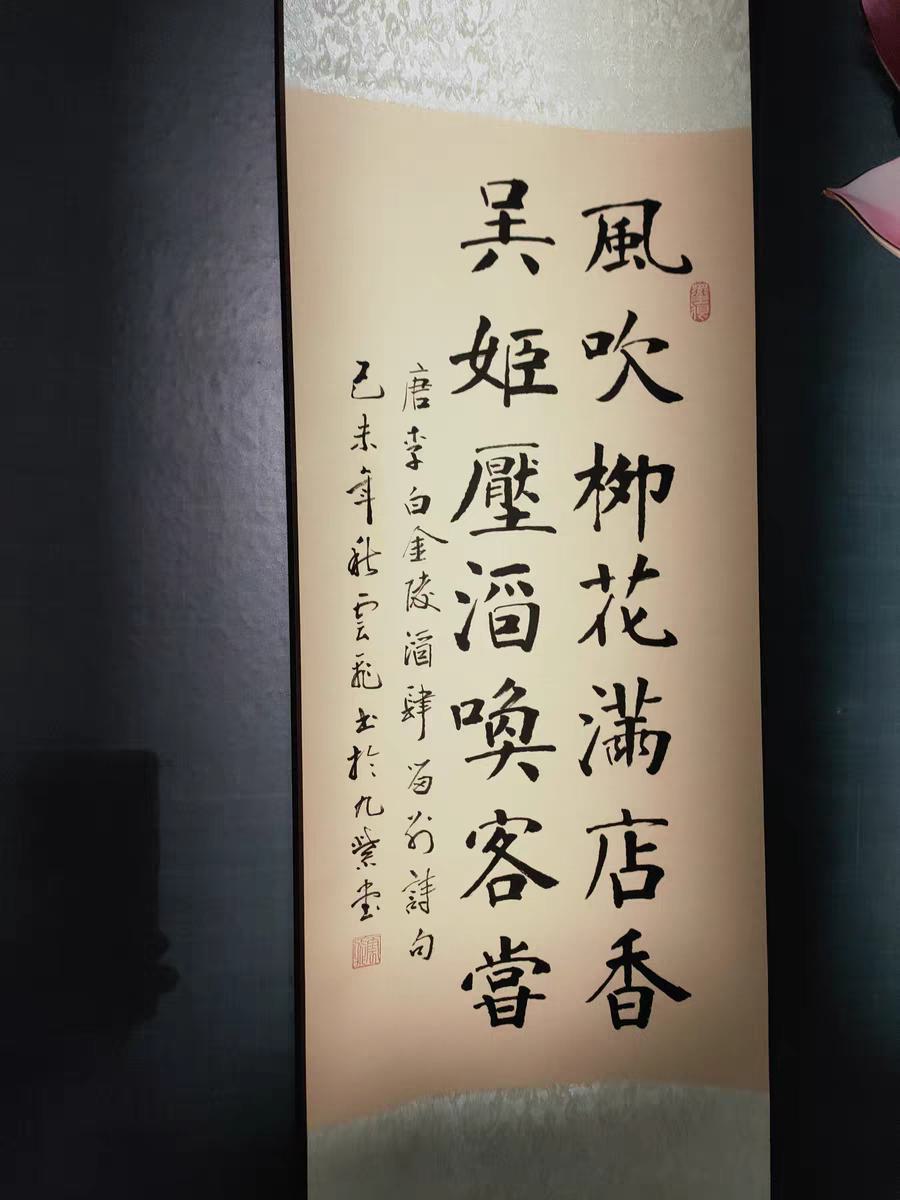 風吹柳花滿店香
吴姬壓酒喚客嘗
唐李白金陵酒肆留别詩句
己未年秋雲飛书於九紫堂